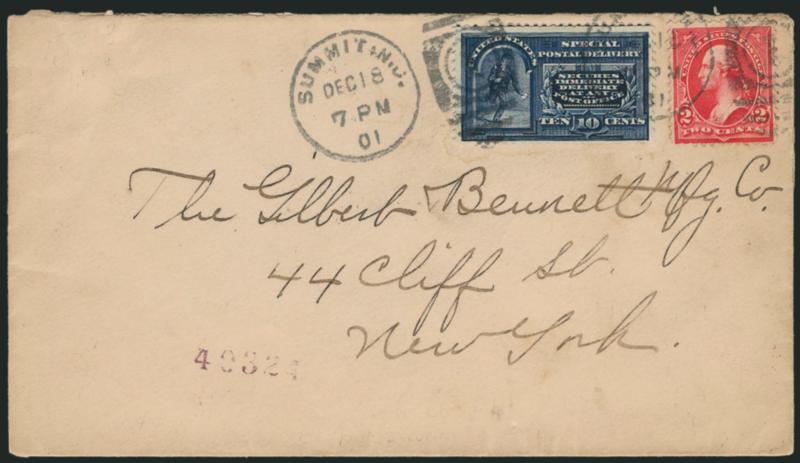 SUMMIT, N.J.
DEC 18
7 PM
01
UNITED STATES
SPECIAL
POSTAL DELIVERY
SECURES
IMMEDIATE
DELIVERY
AT ANY
POST OFFICE
TEN 10 CENTS
2 2
TWO CENTS
The Gilbert Bennett Mfg. Co.
44 Cliff St.
New York.
40324